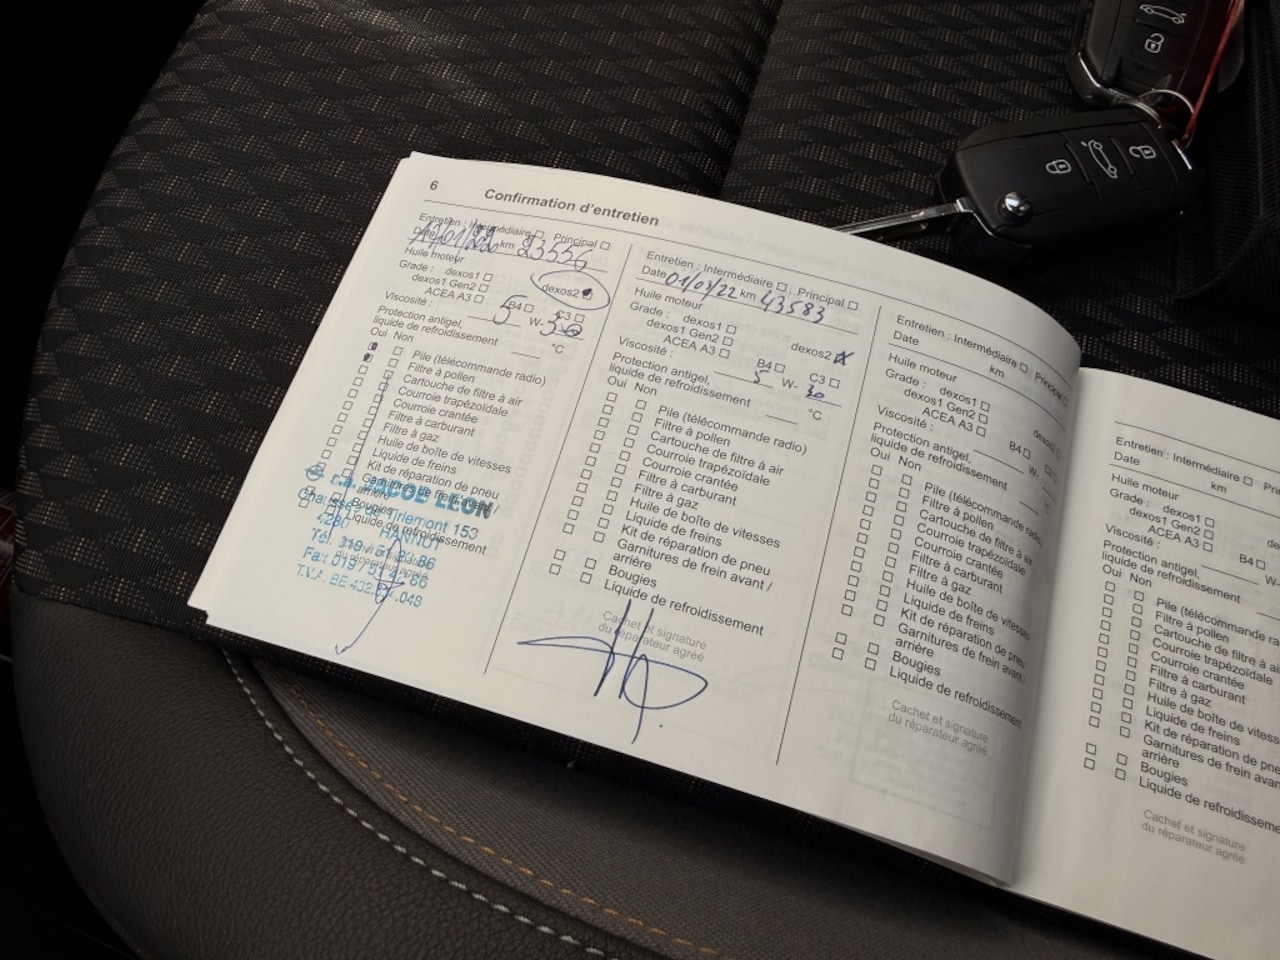 6
Confirmation d'entretien
Entretien : Intermédiaire Principal
Date km 23556
Huile moteur
Grade : dexos1 dexos2
dexos1 Gen2
ACEA A3 B4 C3
Viscosité : 5 W-30
Protection antigel,
liquide de refroidissement °C
Oui Non
Pile (télécommande radio)
Filtre à pollen
Cartouche de filtre à air
Courroie trapézoïdale
Courroie crantée
Filtre à carburant
Filtre à gaz
Huile de boîte de vitesses
Liquide de freins
Kit de réparation de pneu
Garnitures de frein avant /
arrière
Bougies
Liquide de refroidissement
JACOB LEON
Tirlemont 153
4280 HANNUT
Entretien : Intermédiaire Principal
Date 01/03/22 km 43583
Huile moteur
Grade : dexos1 dexos2
dexos1 Gen2
ACEA A3 B4 C3
Viscosité : 5 W- 30
Protection antigel,
liquide de refroidissement °C
Oui Non
Pile (télécommande radio)
Filtre à pollen
Cartouche de filtre à air
Courroie trapézoïdale
Courroie crantée
Filtre à carburant
Filtre à gaz
Huile de boîte de vitesses
Liquide de freins
Kit de réparation de pneu
Garnitures de frein avant /
arrière
Bougies
Liquide de refroidissement
Cachet et signature
du réparateur agréé
Entretien : Intermédiaire
Date km
Huile moteur
Grade : dexos1
dexos1 Gen2
ACEA A3 B4
Viscosité : W-
Protection antigel,
liquide de refroidissement
Oui Non
Pile (télécommande
Filtre à pollen
Cartouche de filtre à air
Courroie trapézoïdale
Courroie crantée
Filtre à carburant
Filtre à gaz
Huile de boîte de vitesses
Liquide de freins
Kit de réparation de pneu
Garnitures de frein avant /
arrière
Bougies
Liquide de refroidissement
Cachet et signature
du réparateur agréé
Entretien : Intermédiaire
Date km
Huile moteur
Grade : dexos1
dexos1 Gen2
ACEA A3 B4
Viscosité : W-
Protection antigel,
liquide de refroidissement
Oui Non
Pile (télécommande
Filtre à pollen
Cartouche de filtre à
Courroie trapézoïdale
Courroie crantée
Filtre à carburant
Filtre à gaz
Huile de boîte de
Liquide de freins
Kit de réparation de
Garnitures de frein
arrière
Bougies
Liquide de
Cachet et signature
du réparateur agréé